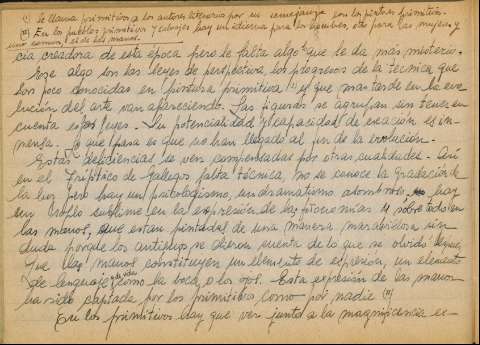 (1) Se llama primitivos a los autores literarios por su semejanza con los pintores primitivos.
(2) En los pueblos primitivos y salvajes hay un idioma para los hombres, otro para las mujeres y
uno común, el de las manos.
cia creadora de esta época pero le falta algo que le da más misterio.
Ese algo son las leyes de perspectiva, los progresos de la técnica que
son poco conocidas en pintura primitiva (1) y que mas tarde en la evo
lución del arte van apareciendo. Las figuras se agrupan sin tener en
cuenta esas leyes. Su potencialidad y capacidad de creación es in-
mensa. Lo que pasa es que no han llegado al fin de la evolución.
Estas deficiencias se ven compensadas por otras cualidades. Así
en el Tríptico de Gallegos, falta técnica, no se conoce la gradación de
la luz pero hay un psicologismo, un dramatismo asombroso. hay
un soplo sublime en la expresión de las fisonomías y sobre todo en
las manos, que estan pintadas de una manera maravillosa sin
duda porque los antiguos se dieron cuenta de lo que se olvidó después,
que las manos constituyen un elemento de expresión, un elemento
de lenguaje como la boca o los ojos. Esta expresión de las manos
ha sido captada por los primitivos como por nadie (2)
En los primitivos hay que ver junto a la magnificencia ex-